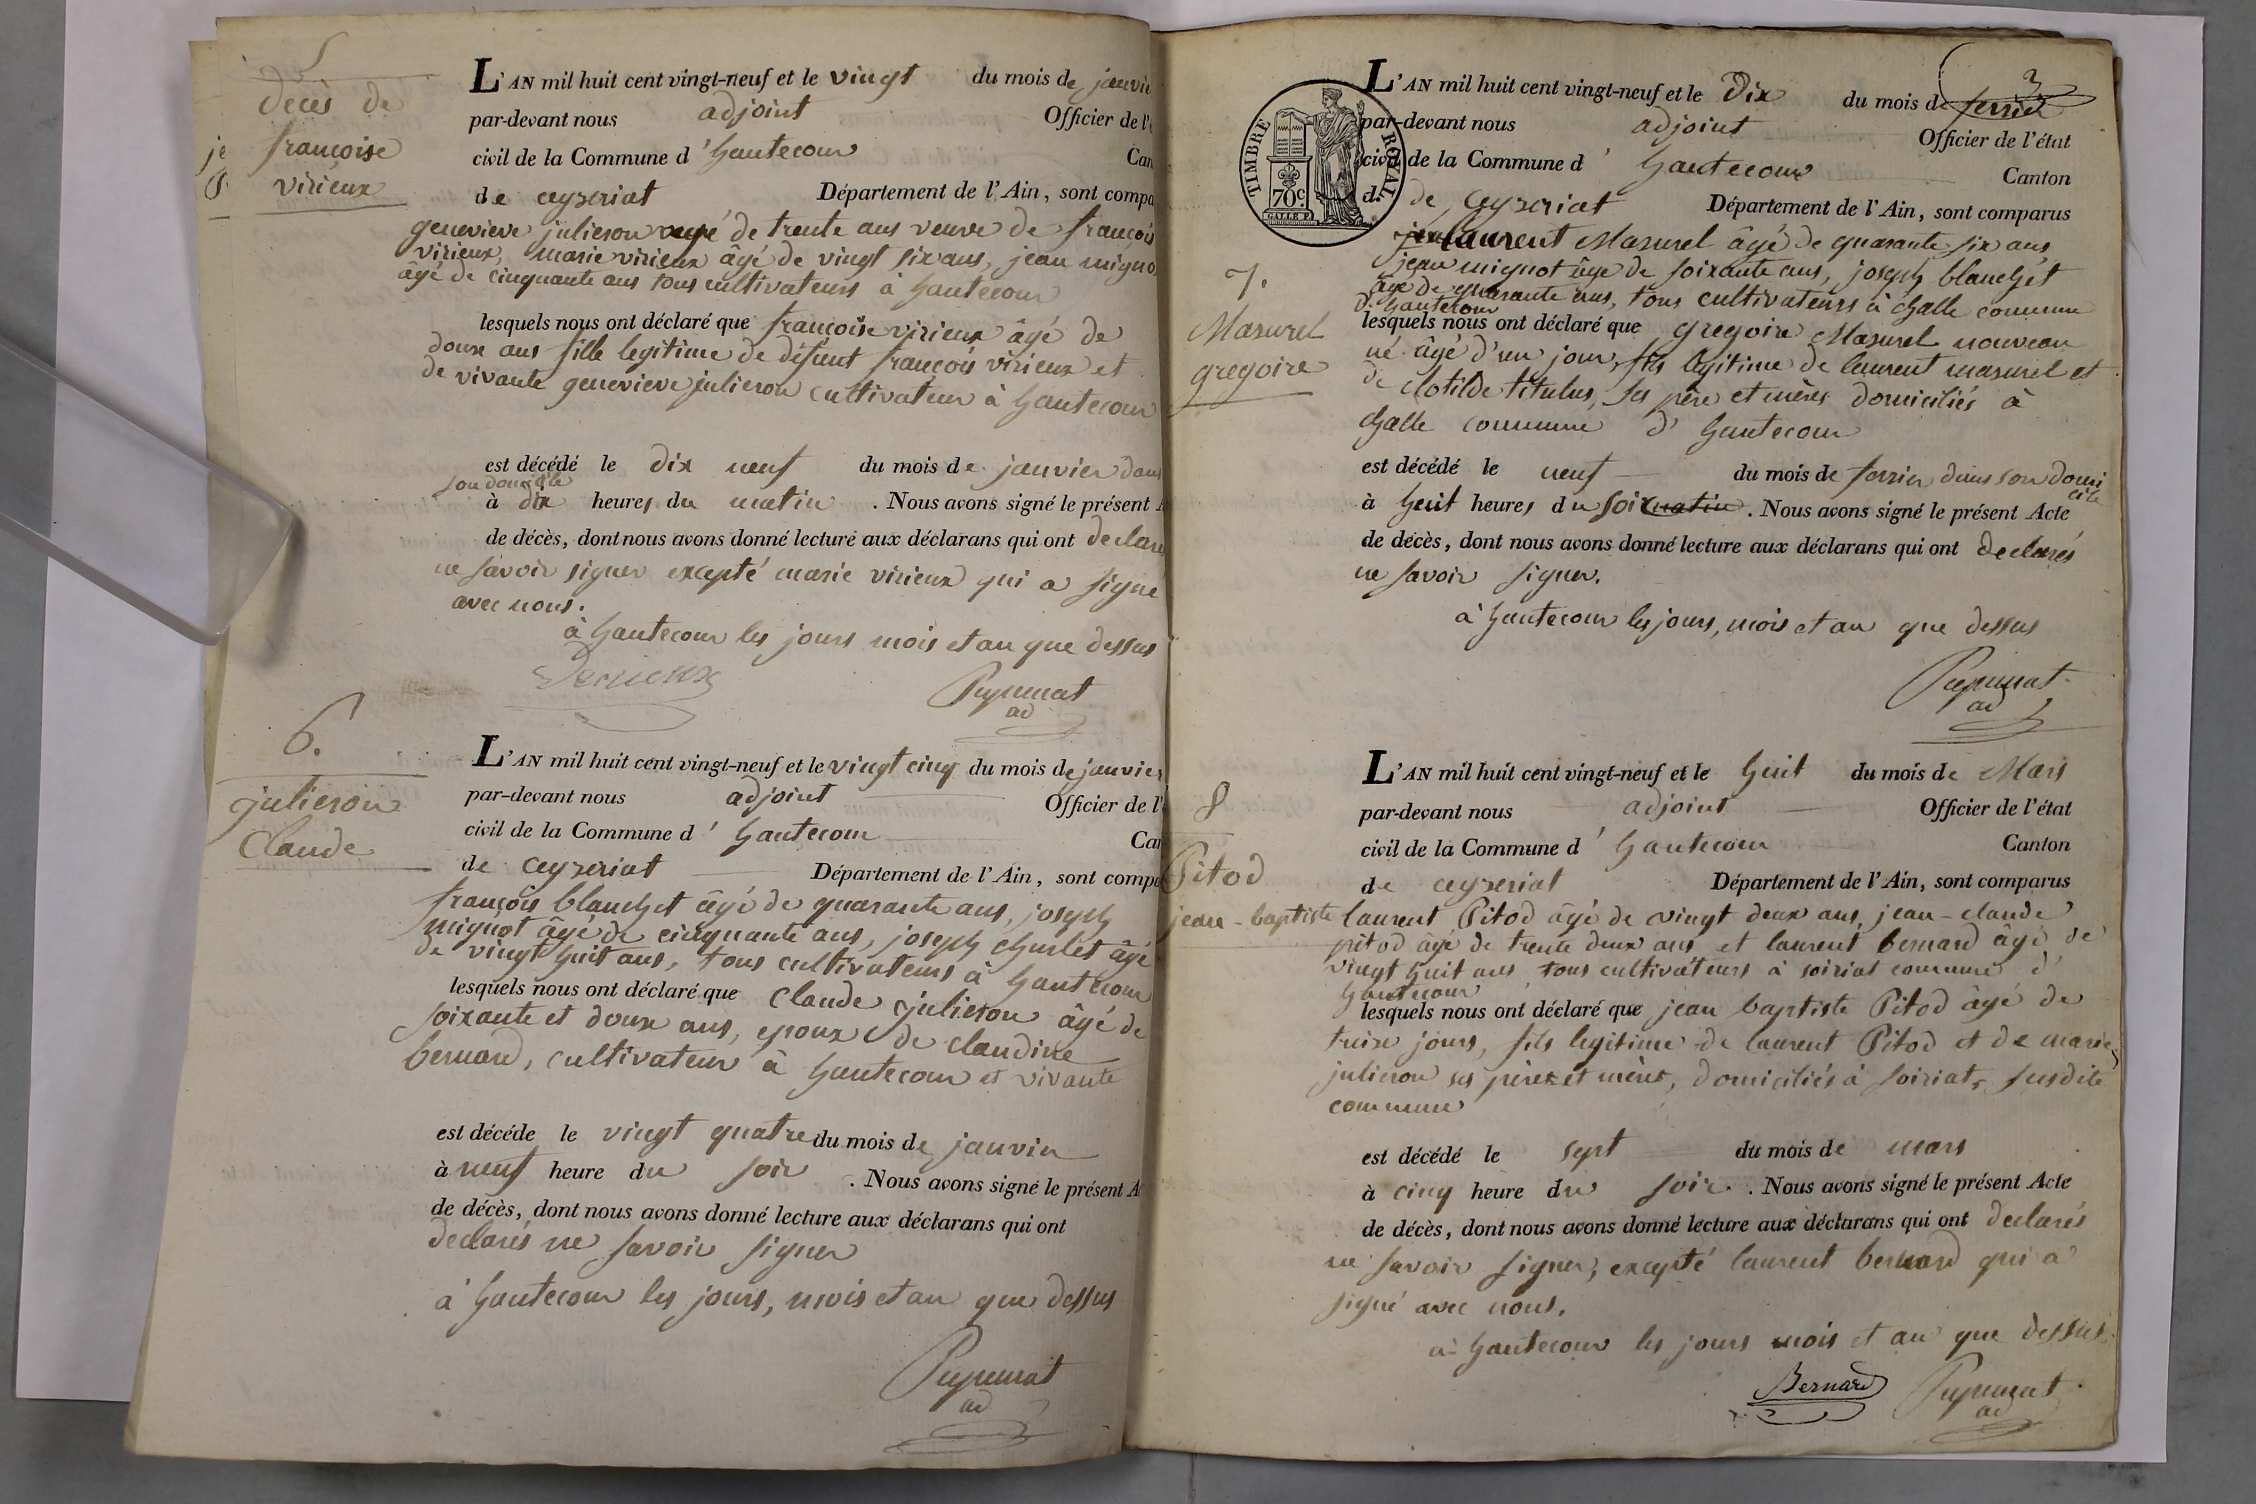 5
décès de
françoise
virieux
L'AN mil huit cent vingt-neuf et le vingt du mois de janvie
par-devant nous adjoint Officier de l'é
civil de la Commune d'hautecour Can
de ceyzeriat Département de l'Ain, sont compa
genevieve julieron agé de trente ans veuve de françois
virieux, marie virieux âgé de vingt six ans, jean migno
âgé de cinquante ans tous cultivateurs à hautecour
lesquels nous ont déclaré que françoise virieux âgé de
douze ans fille legitime de défunt françois virieux et
de vivante genevieve julieron cultivateur à hautecour
est décédé le dix neuf du mois de janvier dans
son domicile
à dix heures du matin . Nous avons signé le présent A
de décès, dont nous avons donné lecture aux déclarans qui ont declaré
ne savoir signer excepté marie virieux qui a signé
avec nous.
à hautecour les jours mois et an que dessus
ad
6.
julieron
Claude
L'AN mil huit cent vingt-neuf et le vingt cinq du mois de janvier
par-devant nous adjoint Officier de l'é
civil de la Commune d'hautecour Can
de ceyzeriat Département de l'Ain, sont compa
françois blanchet âgé de quarante ans, joseph
mignot âgé de cinquante ans, joseph charlet âgé
de vingt huit ans, tous cultivateurs à hautecour
lesquels nous ont déclaré que Claude julieron âgé de
soixante et douze ans, epoux de claudine
bernard, cultivateur à hautecour et vivante
est décéde le vingt quatre du mois de janvier
à neuf heure du soir . Nous avons signé le présent A
de décès, dont nous avons donné lecture aux déclarans qui ont
declarés ne savoir signer
à hautecour les jours, mois et an que dessus
ad
3
L'AN mil huit cent vingt-neuf et le Dix du mois de fevrier
par-devant nous adjoint Officier de l'état
civil de la Commune d'hautecour Canton
d. de Ceyzeriat Département de l'Ain, sont comparus
TIMBRE ROYAL
70c.
7.
Mazurel
gregoire
laurent Mazurel âgé de quarante six ans
jean mignot âge de soixante ans, joseph blanchet
âgé de quarante ans, tous cultivateurs à challe commune
d'hautecour
lesquels nous ont déclaré que gregoire Mazurel nouveau
né âgé d'un jour, fils legitime de laurent mazurel et
de clotilde titulus, ses père et mères domiciliés à
challe commune d'hautecour
est décédé le neuf du mois de fevrier dans son domi
cile
à huit heures du soir matin . Nous avons signé le présent Acte
de décès, dont nous avons donné lecture aux déclarans qui ont declarés
ne savoir signer.
à hautecour les jours, mois et an que dessus
ad
8
Pitod
jean-baptiste
L'AN mil huit cent vingt-neuf et le huit du mois de Mars
par-devant nous adjoint Officier de l'état
civil de la Commune d'hautecour Canton
de ceyzeriat Département de l'Ain, sont comparus
laurent Pitod âgé de vingt deux ans, jean-claude
pitod âgé de trente deux ans et laurent bernard âgé de
vingt huit ans tous cultivateurs à soiriat commune d'
hautecour
lesquels nous ont déclaré que jean baptiste Pitod âgé de
treize jours, fils legitime de laurent Pitod et de marie
julieron ses pères et mères, domiciliés à soiriat, susdite
commune
est décédé le sept du mois de mars
à cinq heure du soir . Nous avons signé le présent Acte
de décès, dont nous avons donné lecture aux déclarans qui ont declarés
ne savoir signer, excepté laurent bernard qui a
signé avec nous.
à hautecour les jours mois et an que dessus
Bernard
ad